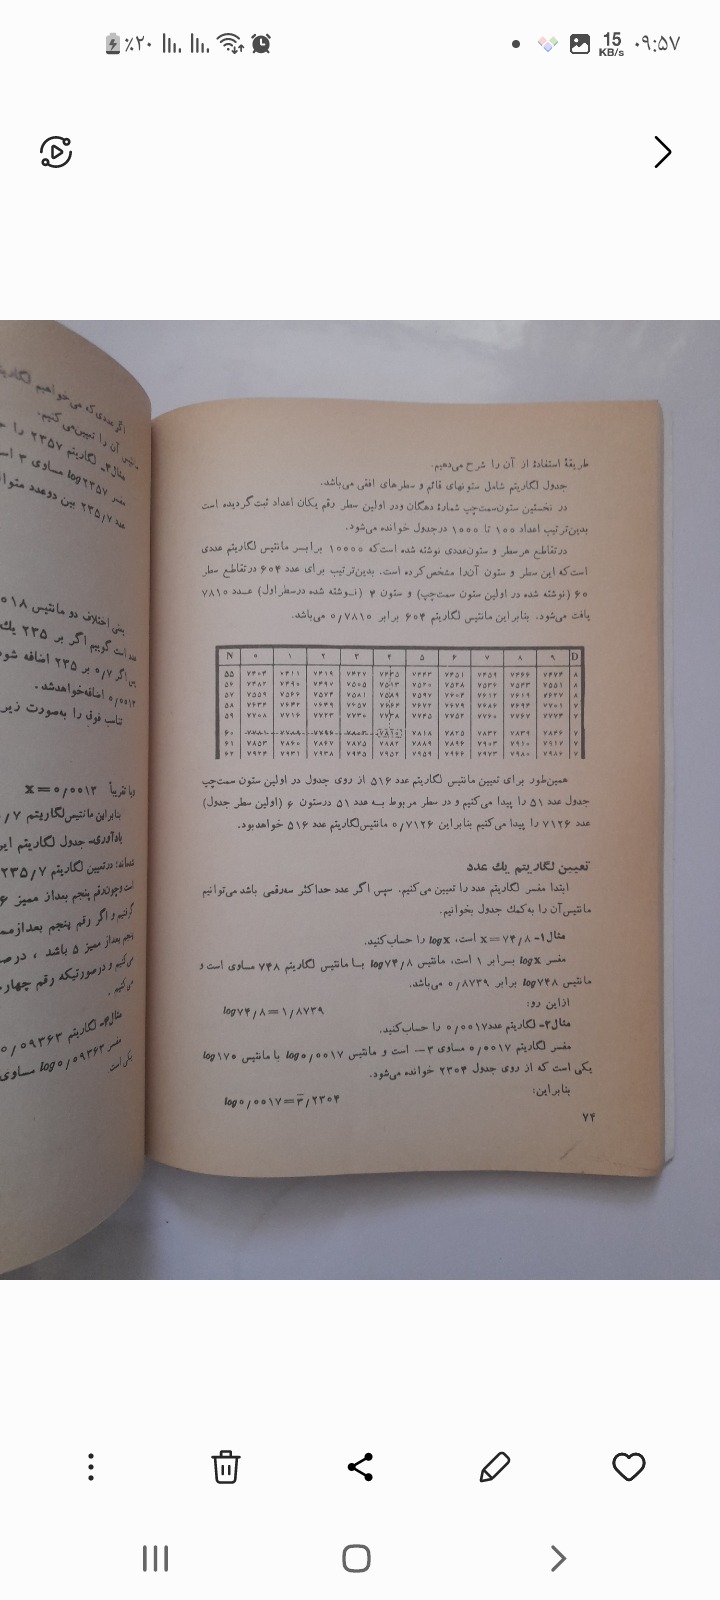 ٪۲۰
15
KB/s
۰۹:۵۷
اگر عددی که می‌خواهیم
آن را تعیین می‌کنیم.
مثال۳ـ لگاریتم ۲۳۵۷ را
مفسر log۲۳۵۷ مساوی ۳
عدد ۲۳۵/۷ بین دوعدد
یعنی اختلاف دو مانتیس ۰۰۱۸
است گوییم اگر بر ۲۳۵ یك
اگر ۰/۷ بر ۲۳۵ اضافه شود
۰/۰۰۱۲ اضافه‌خواهدشد.
تناسب فوق را به‌صورت زیر
x=۰/۰۰۱۳
بنابراین مانتیس لگاریتم
یادآوری- جدول لگاریتم
درتعیین لگاریتم ۲۳۵/۷
مثال۴ـ لگاریتم ۰/۰۹۳۶۳
مفسر log۰/۰۹۳۶۳ مساوی
یکی است
طریقهٔ استفادهٔ از آن را شرح می‌دهیم.
جدول لگاریتم شامل ستونهای قائم و سطرهای افقی می‌باشد.
در نخستین ستون‌سمت‌چپ شمارهٔ دهگان ودر اولین سطر رقم یکان اعداد ثبت گردیده است
بدین‌ترتیب اعداد ۱۰۰ تا ۱۰۰۰ درجدول خوانده می‌شود.
درتقاطع هرسطر و ستون‌عددی نوشته شده است‌که ۱۰۰۰۰ برابسر مانتیس لگاریتم عددی
است‌که این سطر و ستون آن‌را مشخص‌کرده است. بدین‌ترتیب برای عدد ۶۰۴ درتقاطع سطر
۶۰ (نوشته شده در اولین ستون سمت‌چپ) و ستون ۴ (نـوشته شده درسطر اول) عـدد ۷۸۱۰
یافت می‌شود. بنابراین مانتیس لگاریتم ۶۰۴ برابر ۰/۷۸۱۰ می‌باشد.
N ۰ ۱ ۲ ۳ ۴ ۵ ۶ ۷ ۸ ۹ D
۵۵ ۷۴۰۴ ۷۴۱۲ ۷۴۱۹ ۷۴۲۷ ۷۴۳۵ ۷۴۴۳ ۷۴۵۱ ۷۴۵۹ ۷۴۶۶ ۷۴۷۴ ۸
۵۶ ۷۴۸۲ ۷۴۹۰ ۷۴۹۷ ۷۵۰۵ ۷۵۱۳ ۷۵۲۰ ۷۵۲۸ ۷۵۳۶ ۷۵۴۳ ۷۵۵۱ ۸
۵۷ ۷۵۵۹ ۷۵۶۶ ۷۵۷۴ ۷۵۸۱ ۷۵۸۹ ۷۵۹۷ ۷۶۰۴ ۷۶۱۲ ۷۶۱۹ ۷۶۲۷ ۸
۵۸ ۷۶۳۴ ۷۶۴۲ ۷۶۴۹ ۷۶۵۷ ۷۶۶۴ ۷۶۷۲ ۷۶۷۹ ۷۶۸۶ ۷۶۹۴ ۷۷۰۱ ۷
۵۹ ۷۷۰۸ ۷۷۱۶ ۷۷۲۳ ۷۷۳۰ ۷۷۳۸ ۷۷۴۵ ۷۷۵۲ ۷۷۶۰ ۷۷۶۷ ۷۷۷۴ ۷
۶۰ ۷۷۸۱ ۷۷۸۹ ۷۷۹۶ ۷۸۰۳ ۷۸۱۰ ۷۸۱۸ ۷۸۲۵ ۷۸۳۲ ۷۸۳۹ ۷۸۴۶ ۷
۶۱ ۷۸۵۳ ۷۸۶۰ ۷۸۶۷ ۷۸۷۵ ۷۸۸۲ ۷۸۸۹ ۷۸۹۶ ۷۹۰۳ ۷۹۱۰ ۷۹۱۷ ۷
۶۲ ۷۹۲۴ ۷۹۳۱ ۷۹۳۸ ۷۹۴۵ ۷۹۵۲ ۷۹۵۹ ۷۹۶۶ ۷۹۷۳ ۷۹۸۰ ۷۹۸۷ ۷
همین‌طور برای تعیین مانتیس لگاریتم عدد ۵۱۶ از روی جدول در اولین ستون سمت‌چپ
جدول عدد ۵۱ را پیدا می‌کنیم و در سطر مربوط بـه عدد ۵۱ درستون ۶ (اولین سطر جدول)
عدد ۷۱۲۶ را پیدا می‌کنیم بنابراین ۰/۷۱۲۶ مانتیس‌لگاریتم عدد ۵۱۶ خواهدبود.
تعیین لگاریتم یك عدد
ابتدا مفسر لگاریتم عدد را تعیین می‌کنیم. سپس اگر عدد حداکثر سه‌رقمی باشد می‌توانیم
مانتیس‌آن را به‌کمك جدول بخوانیم.
مثال۱- x=۷۴/۸ است، logx را حساب‌کنید.
مفسر logx بسرابر ۱ است، مانتیس log۷۴/۸ بـا مانتیس لگاریتم ۷۴۸ مساوی است و
مانتیس log۷۴۸ برابر ۰/۸۷۳۹ می‌باشد.
ازاین رو:
log۷۴/۸=۱/۸۷۳۹
مثال۲ـ لگاریتم عدد۰/۰۰۱۷ را حساب‌کنید.
مفسر لگاریتم ۰/۰۰۱۷ مساوی ۳- است و مانتیس log۰/۰۰۱۷ با مانتیس log۱۷۰
یکی است که از روی جدول ۲۳۰۴ خوانده می‌شود.
بنابراین:
log۰/۰۰۱۷=۳̄/۲۳۰۴
۷۴